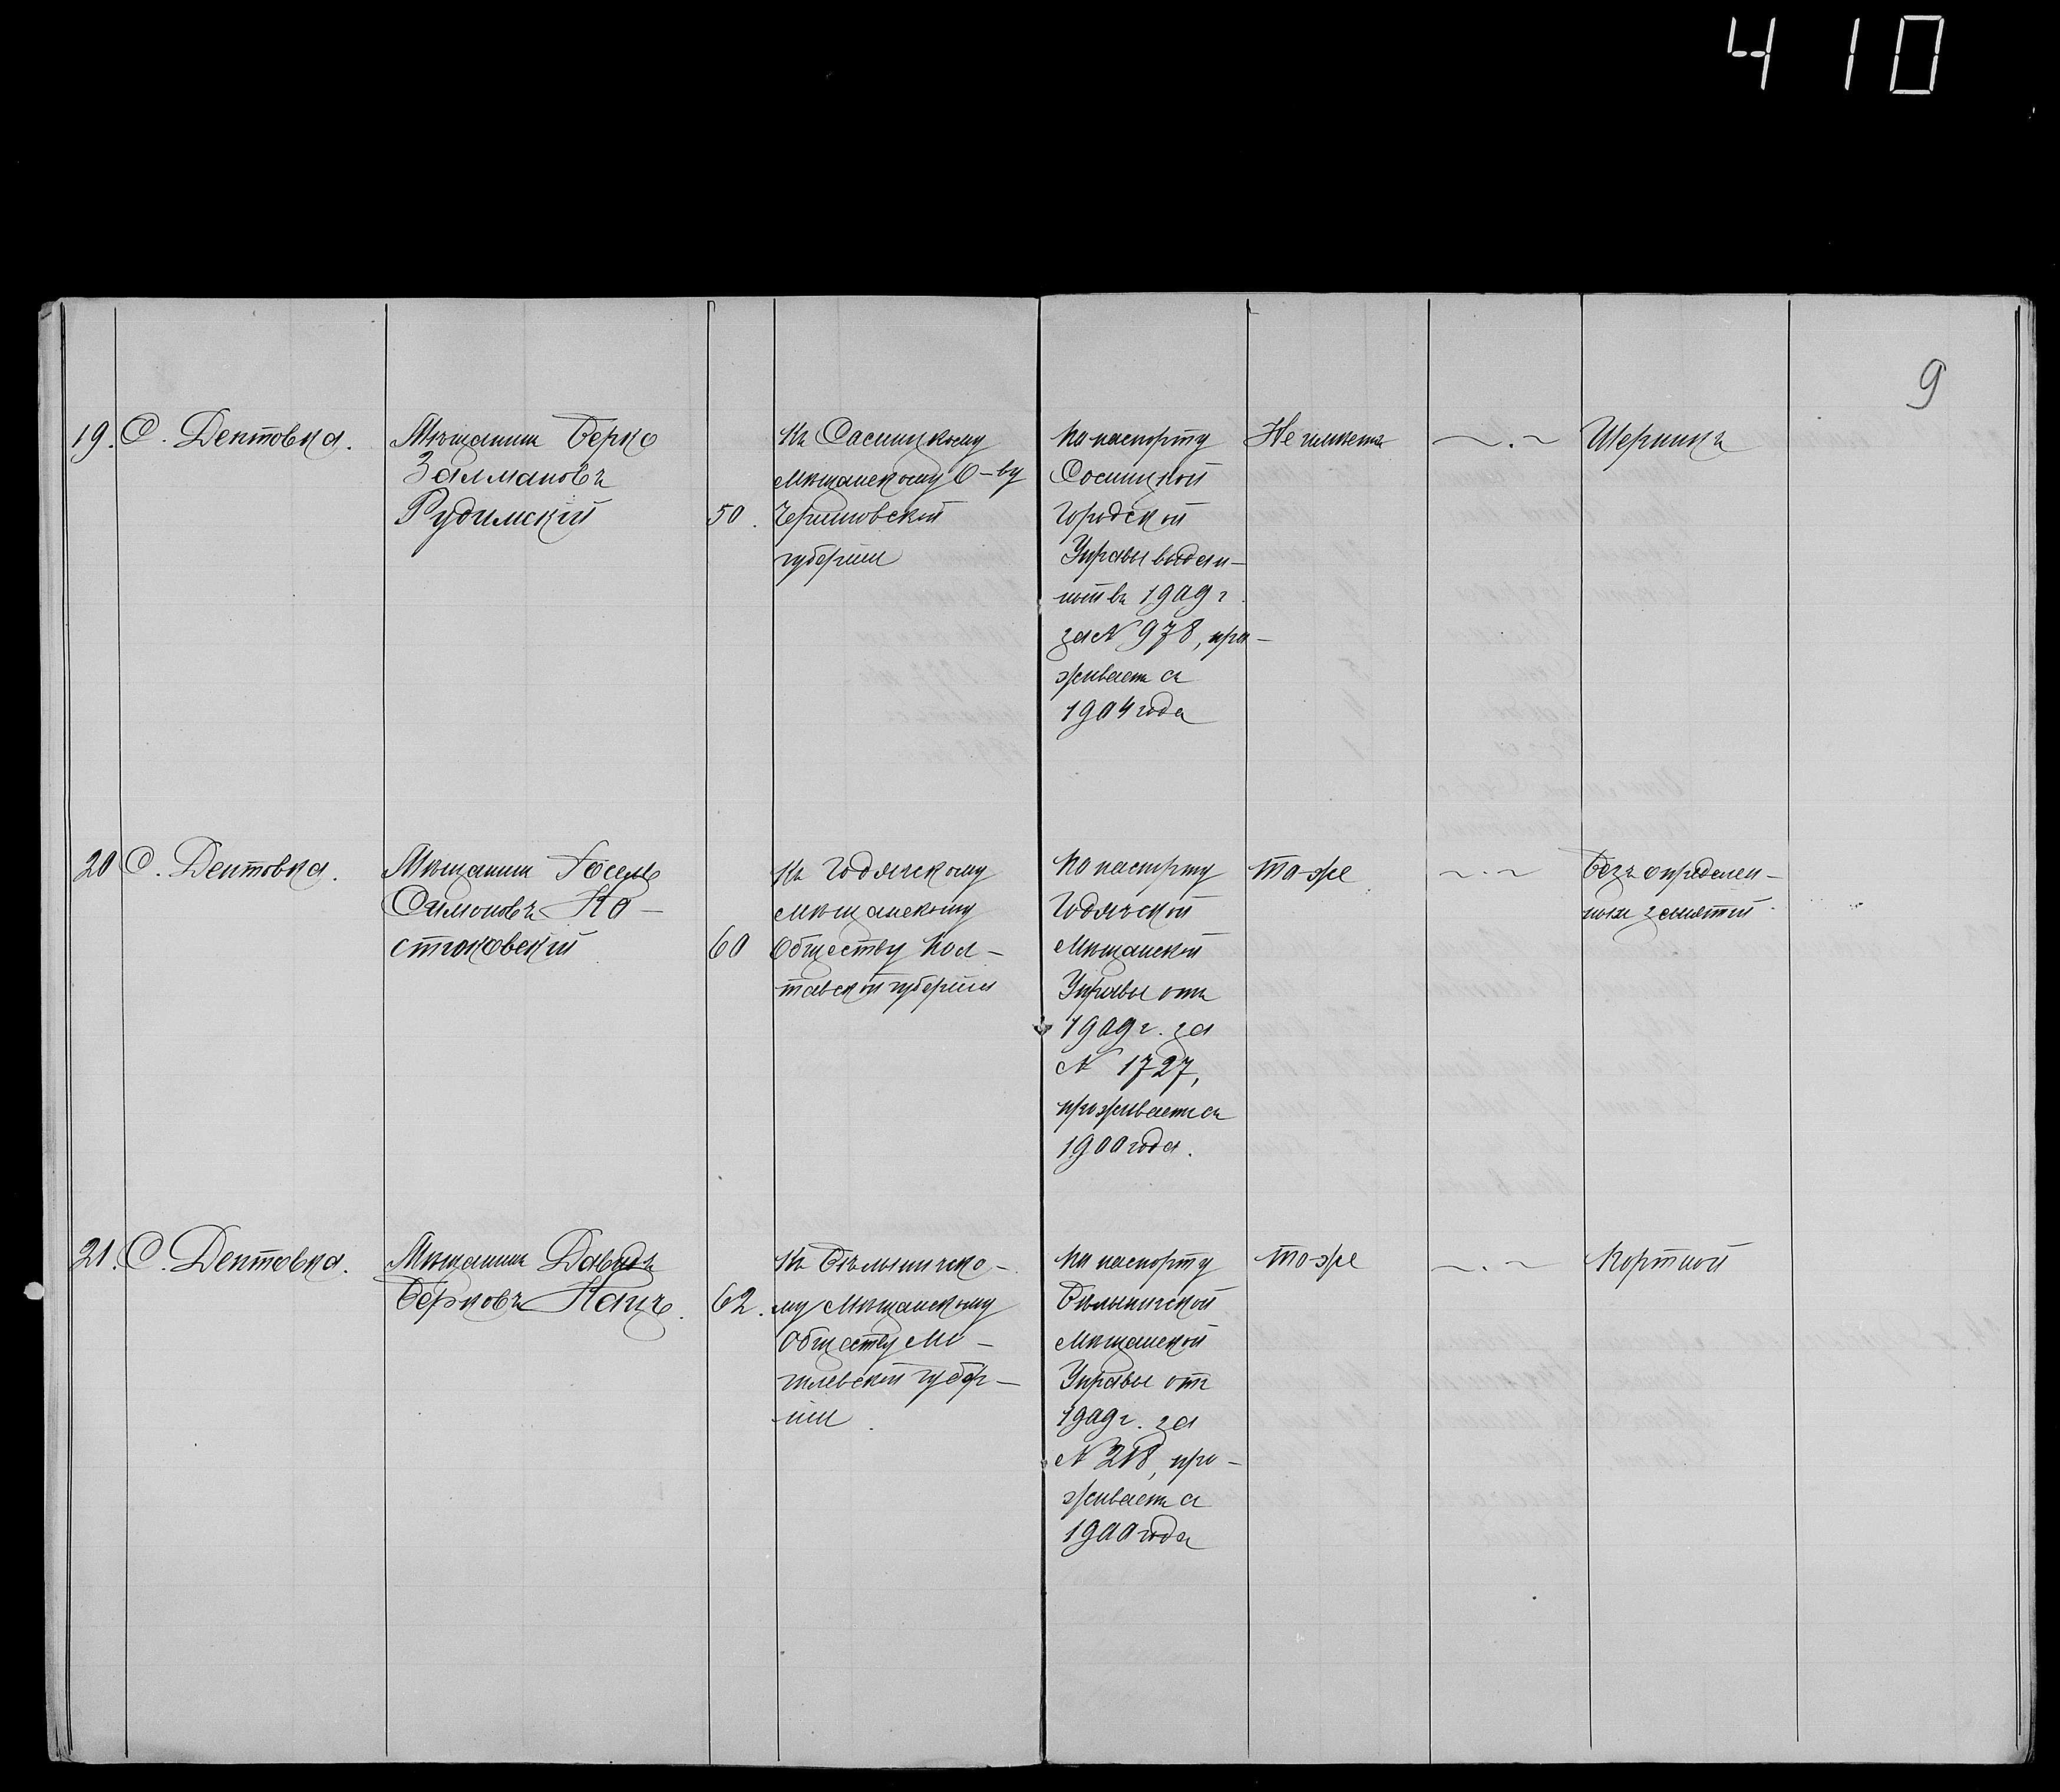 4 10
9
19. С. Дептовка.
Мѣщанинъ Берко
Залмановъ
Рудимскій
50.
Къ Сосницкому
мѣщанскому О-ву
Черниговской
губерніи
По паспорту
Сосницкой
городской
Управы выдан-
ной въ 1909 г.
за № 978, про-
живаетъ съ
1904 года
Не имѣетъ
Шерникъ
20 С. Дептовка.
Мѣщанинъ Іосель
Симоновъ Ко-
стюковскій
60
Къ Гадячскому
мѣщанскому
Обществу Пол-
тавской губерніи
По паспорту
Гадячской
Мѣщанской
Управы отъ
1909 г. за
№ 1727,
проживаетъ съ
1900 года.
то-же
Безъ опредѣлен-
ныхъ занятій.
21. С. Дептовка.
Мѣщанинъ Давидъ
Берковъ Кацъ.
62.
Къ Бѣлыничско-
му мѣщанскому
Обществу Мо-
гилевской губер-
ніи.
По паспорту
Бѣлыничской
Мѣщанской
Управы отъ
1909 г. за
№ 218, про-
живаетъ съ
1900 года
то-же
Портной